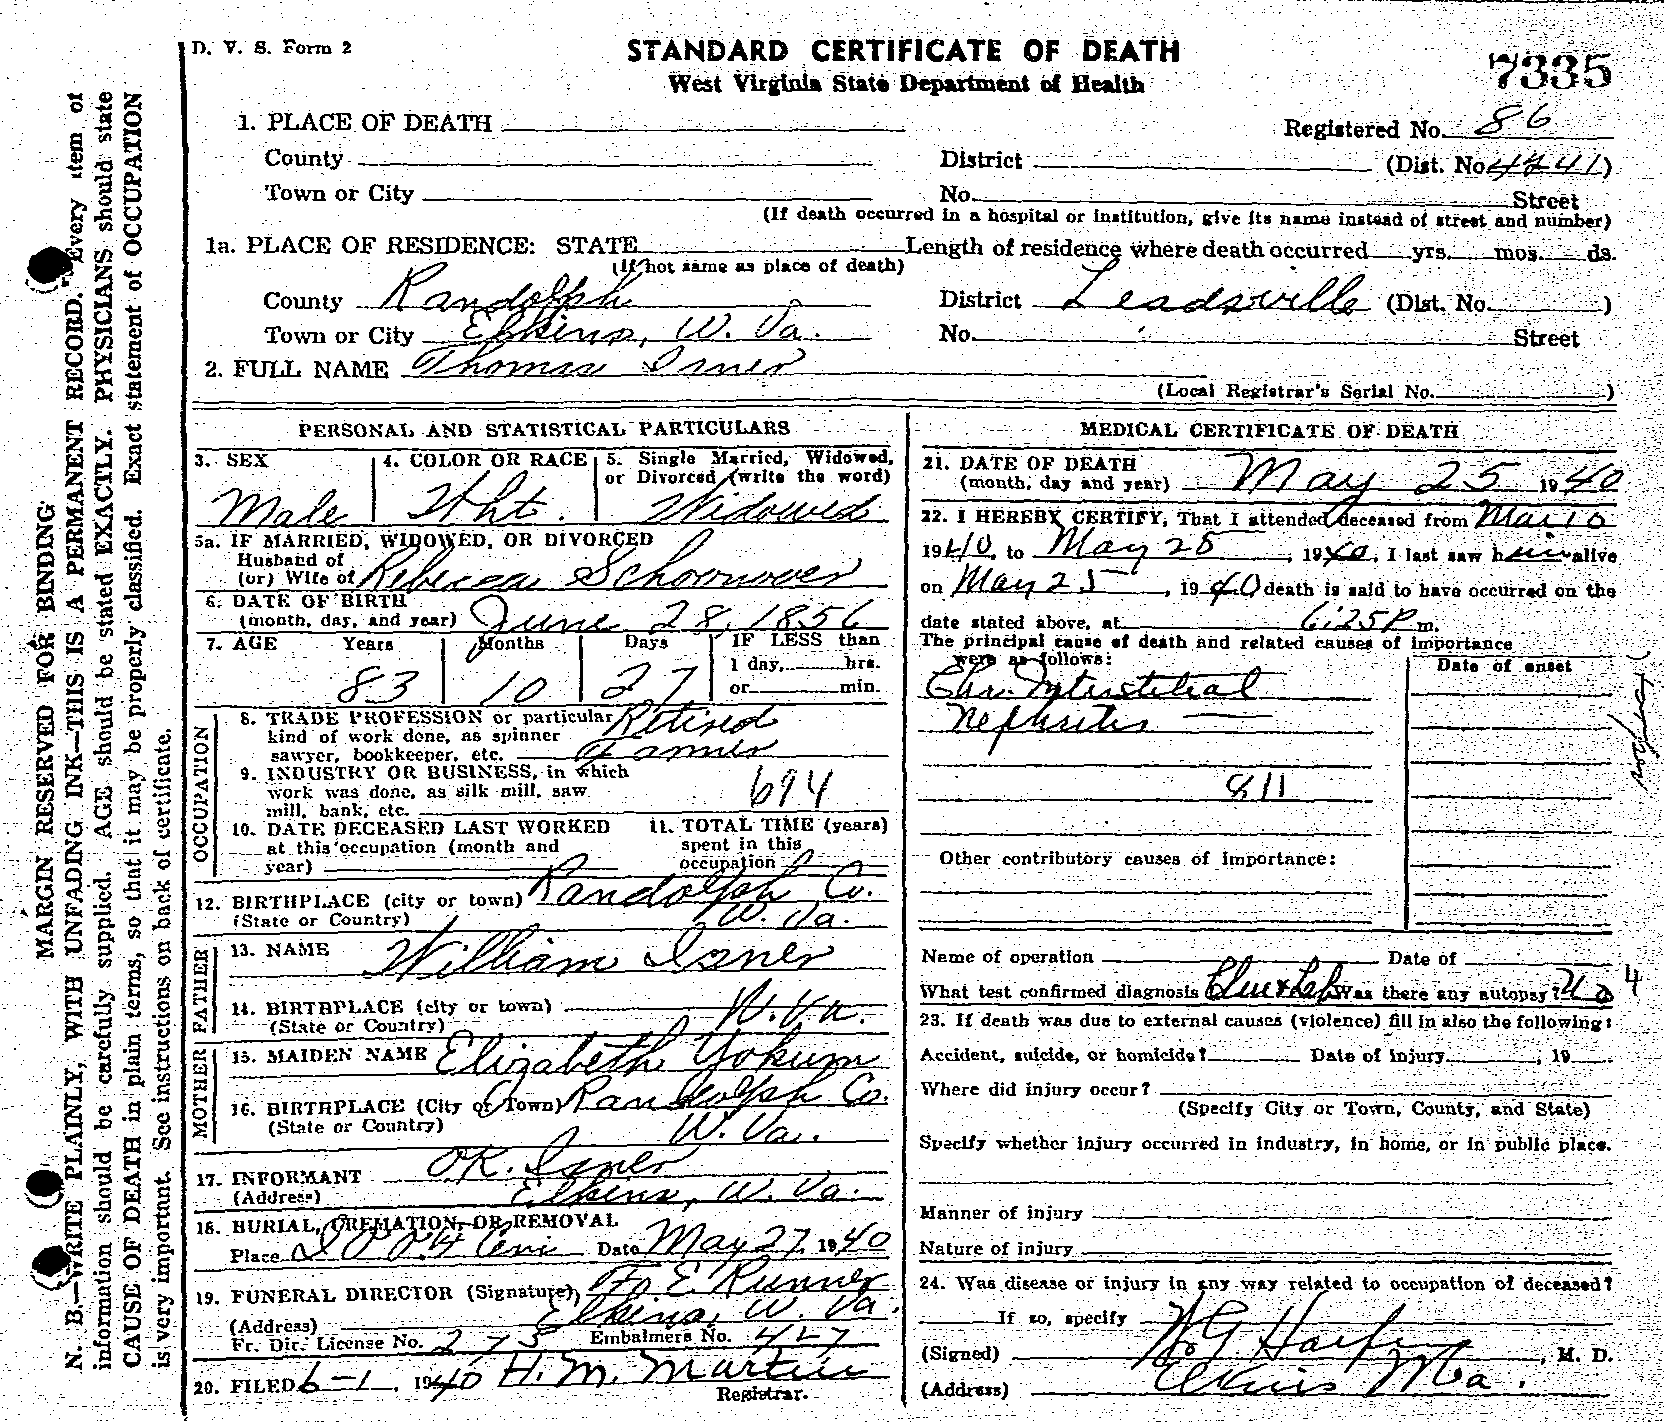 D. V. S. Form 2
STANDARD CERTIFICATE OF DEATH
West Virginia State Department of Health
7335
1. PLACE OF DEATH
Registered No. 86
County
District (Dist. No. 4241)
Town or City
No. Street
(If death occurred in a hospital or institution, give its name instead of street and number)
1a. PLACE OF RESIDENCE: STATE Length of residence where death occurred yrs. mos. ds.
(If not same as place of death)
County Randolph District Leadsville (Dist. No. )
Town or City Elkins, W. Va. No. Street
2. FULL NAME Thomas Isner
(Local Registrar's Serial No. )
PERSONAL AND STATISTICAL PARTICULARS
3. SEX
Male
4. COLOR OR RACE
Wht.
5. Single Married, Widowed,
or Divorced (write the word)
Widowed
5a. IF MARRIED, WIDOWED, OR DIVORCED
Husband of
(or) Wife of Rebecca Schoonover
6. DATE OF BIRTH
(month, day, and year) June 28, 1856
7. AGE Years Months Days IF LESS than
1 day, hrs.
83 10 27 or min.
OCCUPATION
8. TRADE PROFESSION or particular Retired
kind of work done, as spinner
sawyer, bookkeeper, etc. Farmer
9. INDUSTRY OR BUSINESS, in which
work was done, as silk mill, saw 694
mill, bank, etc.
10. DATE DECEASED LAST WORKED
at this occupation (month and
year)
11. TOTAL TIME (years)
spent in this
occupation
12. BIRTHPLACE (city or town) Randolph Co.
(State or Country) W. Va.
FATHER
13. NAME William Isner
14. BIRTHPLACE (city or town) W. Va.
(State or Country)
MOTHER
15. MAIDEN NAME Elizabeth Yokum
16. BIRTHPLACE (City or Town) Randolph Co.
(State or Country) W. Va.
17. INFORMANT O.K. Isner
(Address) Elkins, W. Va.
18. BURIAL, CREMATION, OR REMOVAL
Place I O O F Cem Date May 27, 1940
19. FUNERAL DIRECTOR (Signature) E Runner
(Address) Elkins, W. Va.
Fr. Dir. License No. 275 Embalmers No. 427
20. FILED 6-1, 1940 H. M. Martin
Registrar.
MEDICAL CERTIFICATE OF DEATH
21. DATE OF DEATH
(month, day and year) May 25 1940
22. I HEREBY CERTIFY, That I attended deceased from Mar 10
1940, to May 25, 1940, I last saw him alive
on May 25, 1940 death is said to have occurred on the
date stated above, at 6:25P m.
The principal cause of death and related causes of importance
were as follows:
Date of onset
Chr. Interstitial
Nephritis
811
Other contributory causes of importance:
Name of operation Date of
What test confirmed diagnosis Clin & Lab Was there any autopsy? No
4
23. If death was due to external causes (violence) fill in also the following:
Accident, suicide, or homicide? Date of injury , 19
Where did injury occur?
(Specify City or Town, County, and State)
Specify whether injury occurred in industry, in home, or in public place.
Manner of injury
Nature of injury
24. Was disease or injury in any way related to occupation of deceased?
If so, specify
(Signed) , M. D.
(Address) Elkins
MARGIN RESERVED FOR BINDING
N. B.—WRITE PLAINLY, WITH UNFADING INK—THIS IS A PERMANENT RECORD. Every item of
information should be carefully supplied. AGE should be stated EXACTLY. PHYSICIANS should state
CAUSE OF DEATH in plain terms, so that it may be properly classified. Exact statement of OCCUPATION
is very important. See instructions on back of certificate.